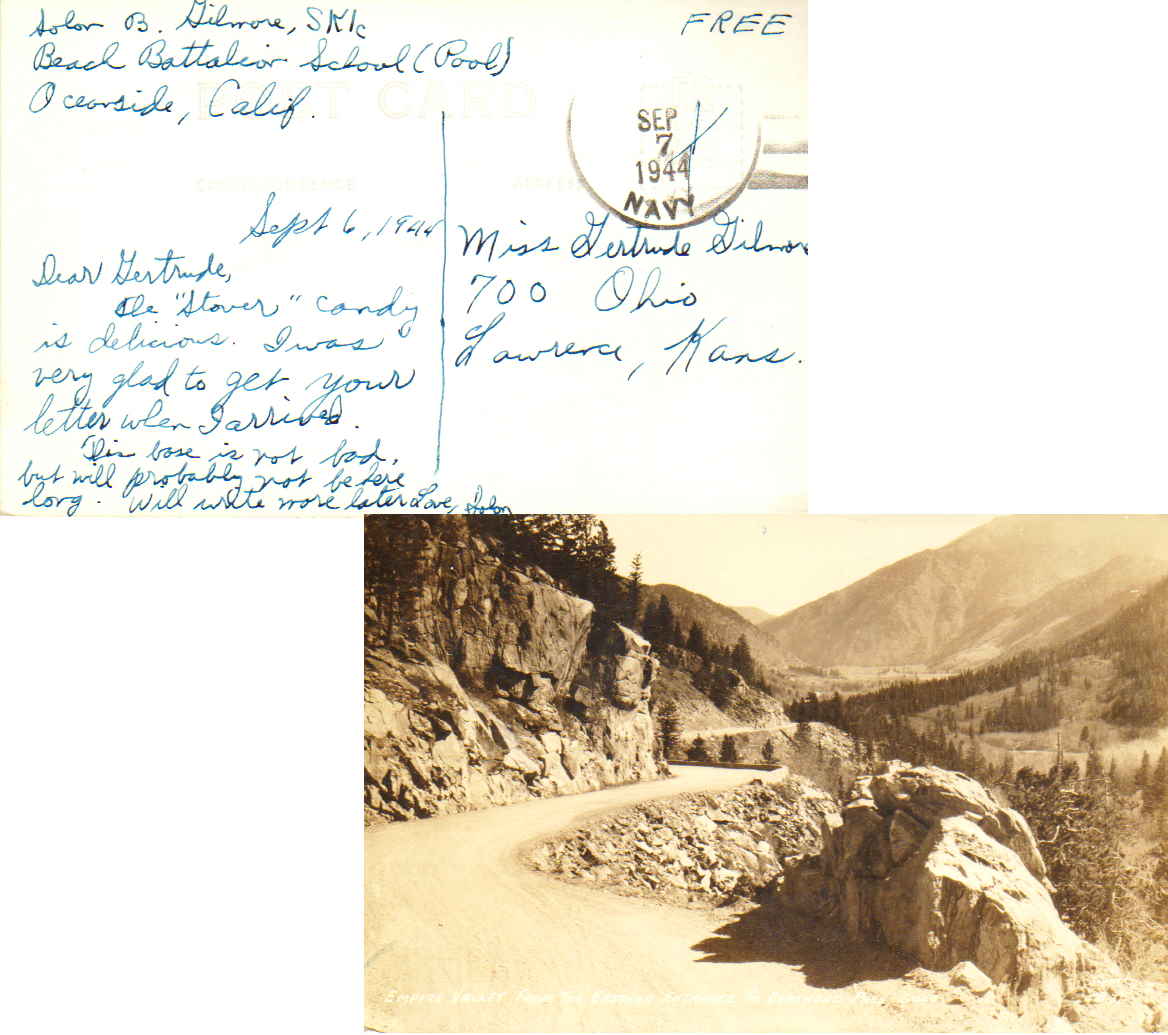 Solon B. Gilmore, SK1c
Beach Battalion School (Pool)
Oceanside, Calif.
FREE
POST CARD
CORRESPONDENCE
ADDRESS
SEP
7
1944
NAVY
Sept 6, 1944
Dear Gertrude,
The "Stover" candy
is delicious. I was
very glad to get your
letter when I arrived.
This base is not bad,
but will probably not be here
long. Will write more later Love, Solon
Miss Gertrude Gilmore
700 Ohio
Lawrence, Kans.
EMPIRE VALLEY FROM THE EASTERN ENTRANCE TO BERTHOUD PASS COLO.